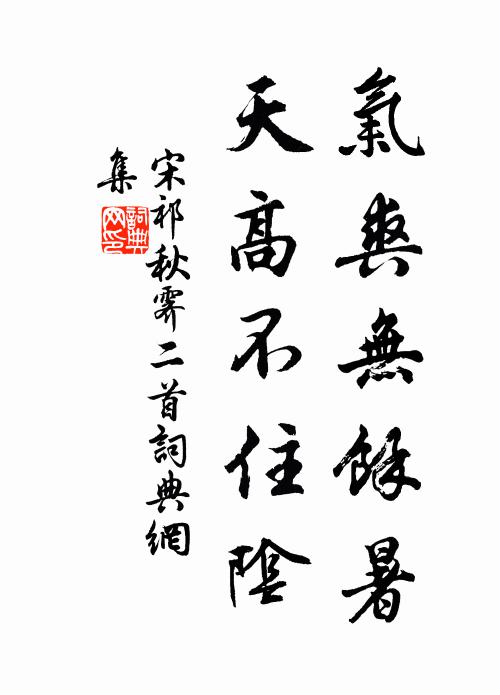 氣爽無餘暑
天高不住陰
宋祁秋霽二首詞典網
集
詞典
网印